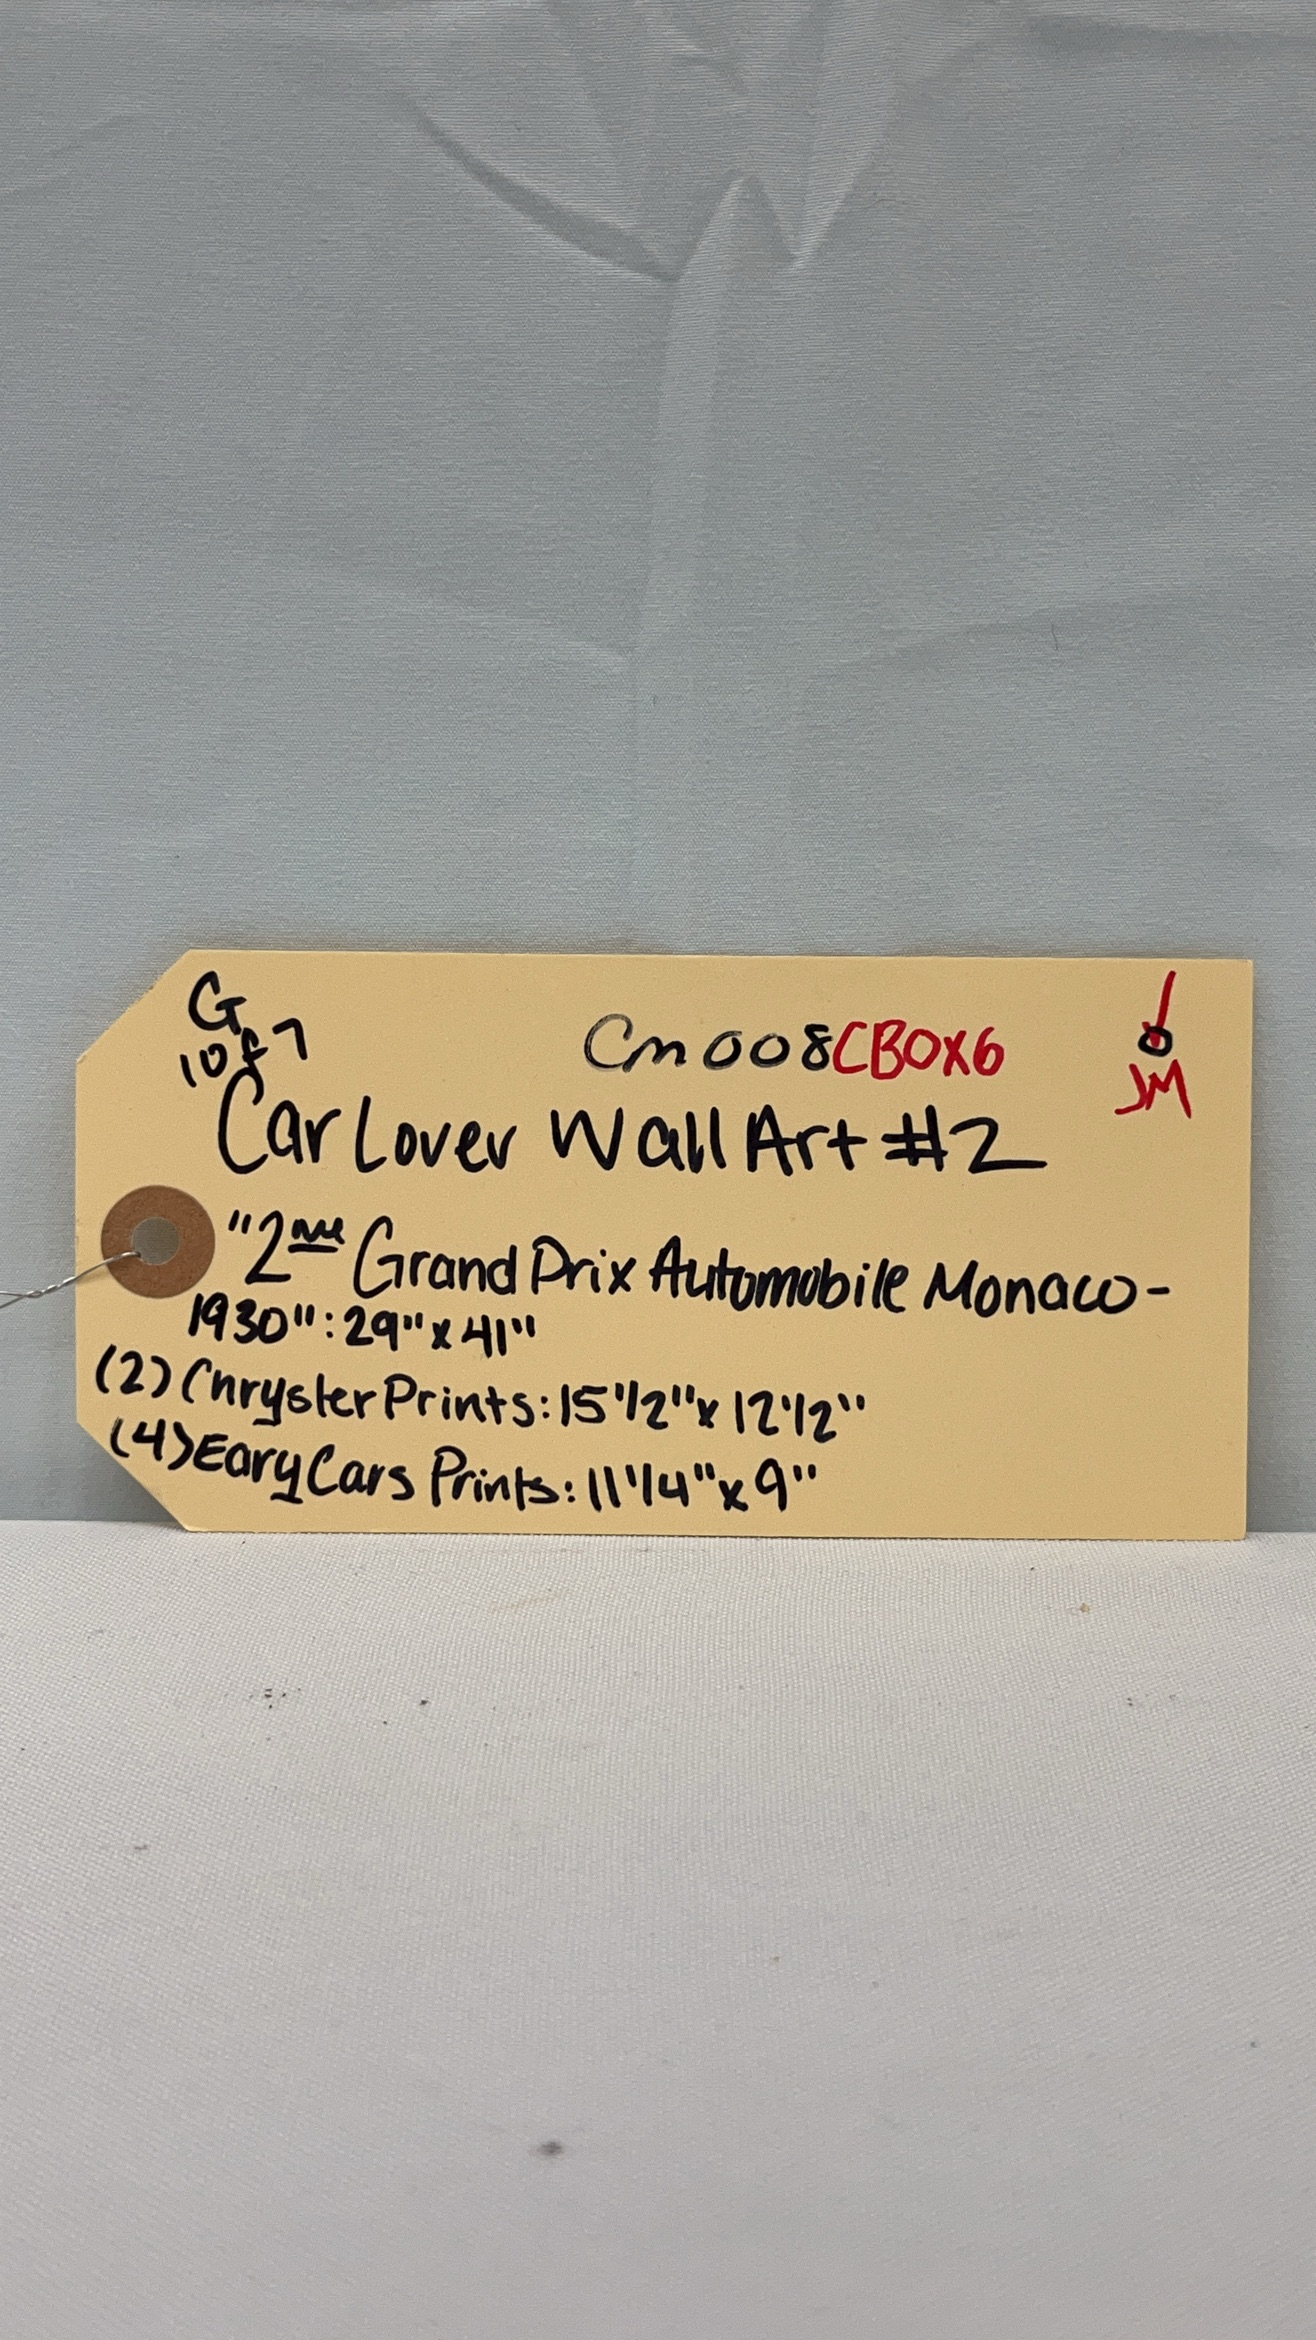 G
1 of 7
Cm008CBOX6
JM
Car Lover Wall Art #2
"2me Grand Prix Automobile Monaco-
1930": 29" x 41"
(2) Chrysler Prints: 15 1/2" x 12 1/2"
(4) Eary Cars Prints: 11 1/4" x 9"